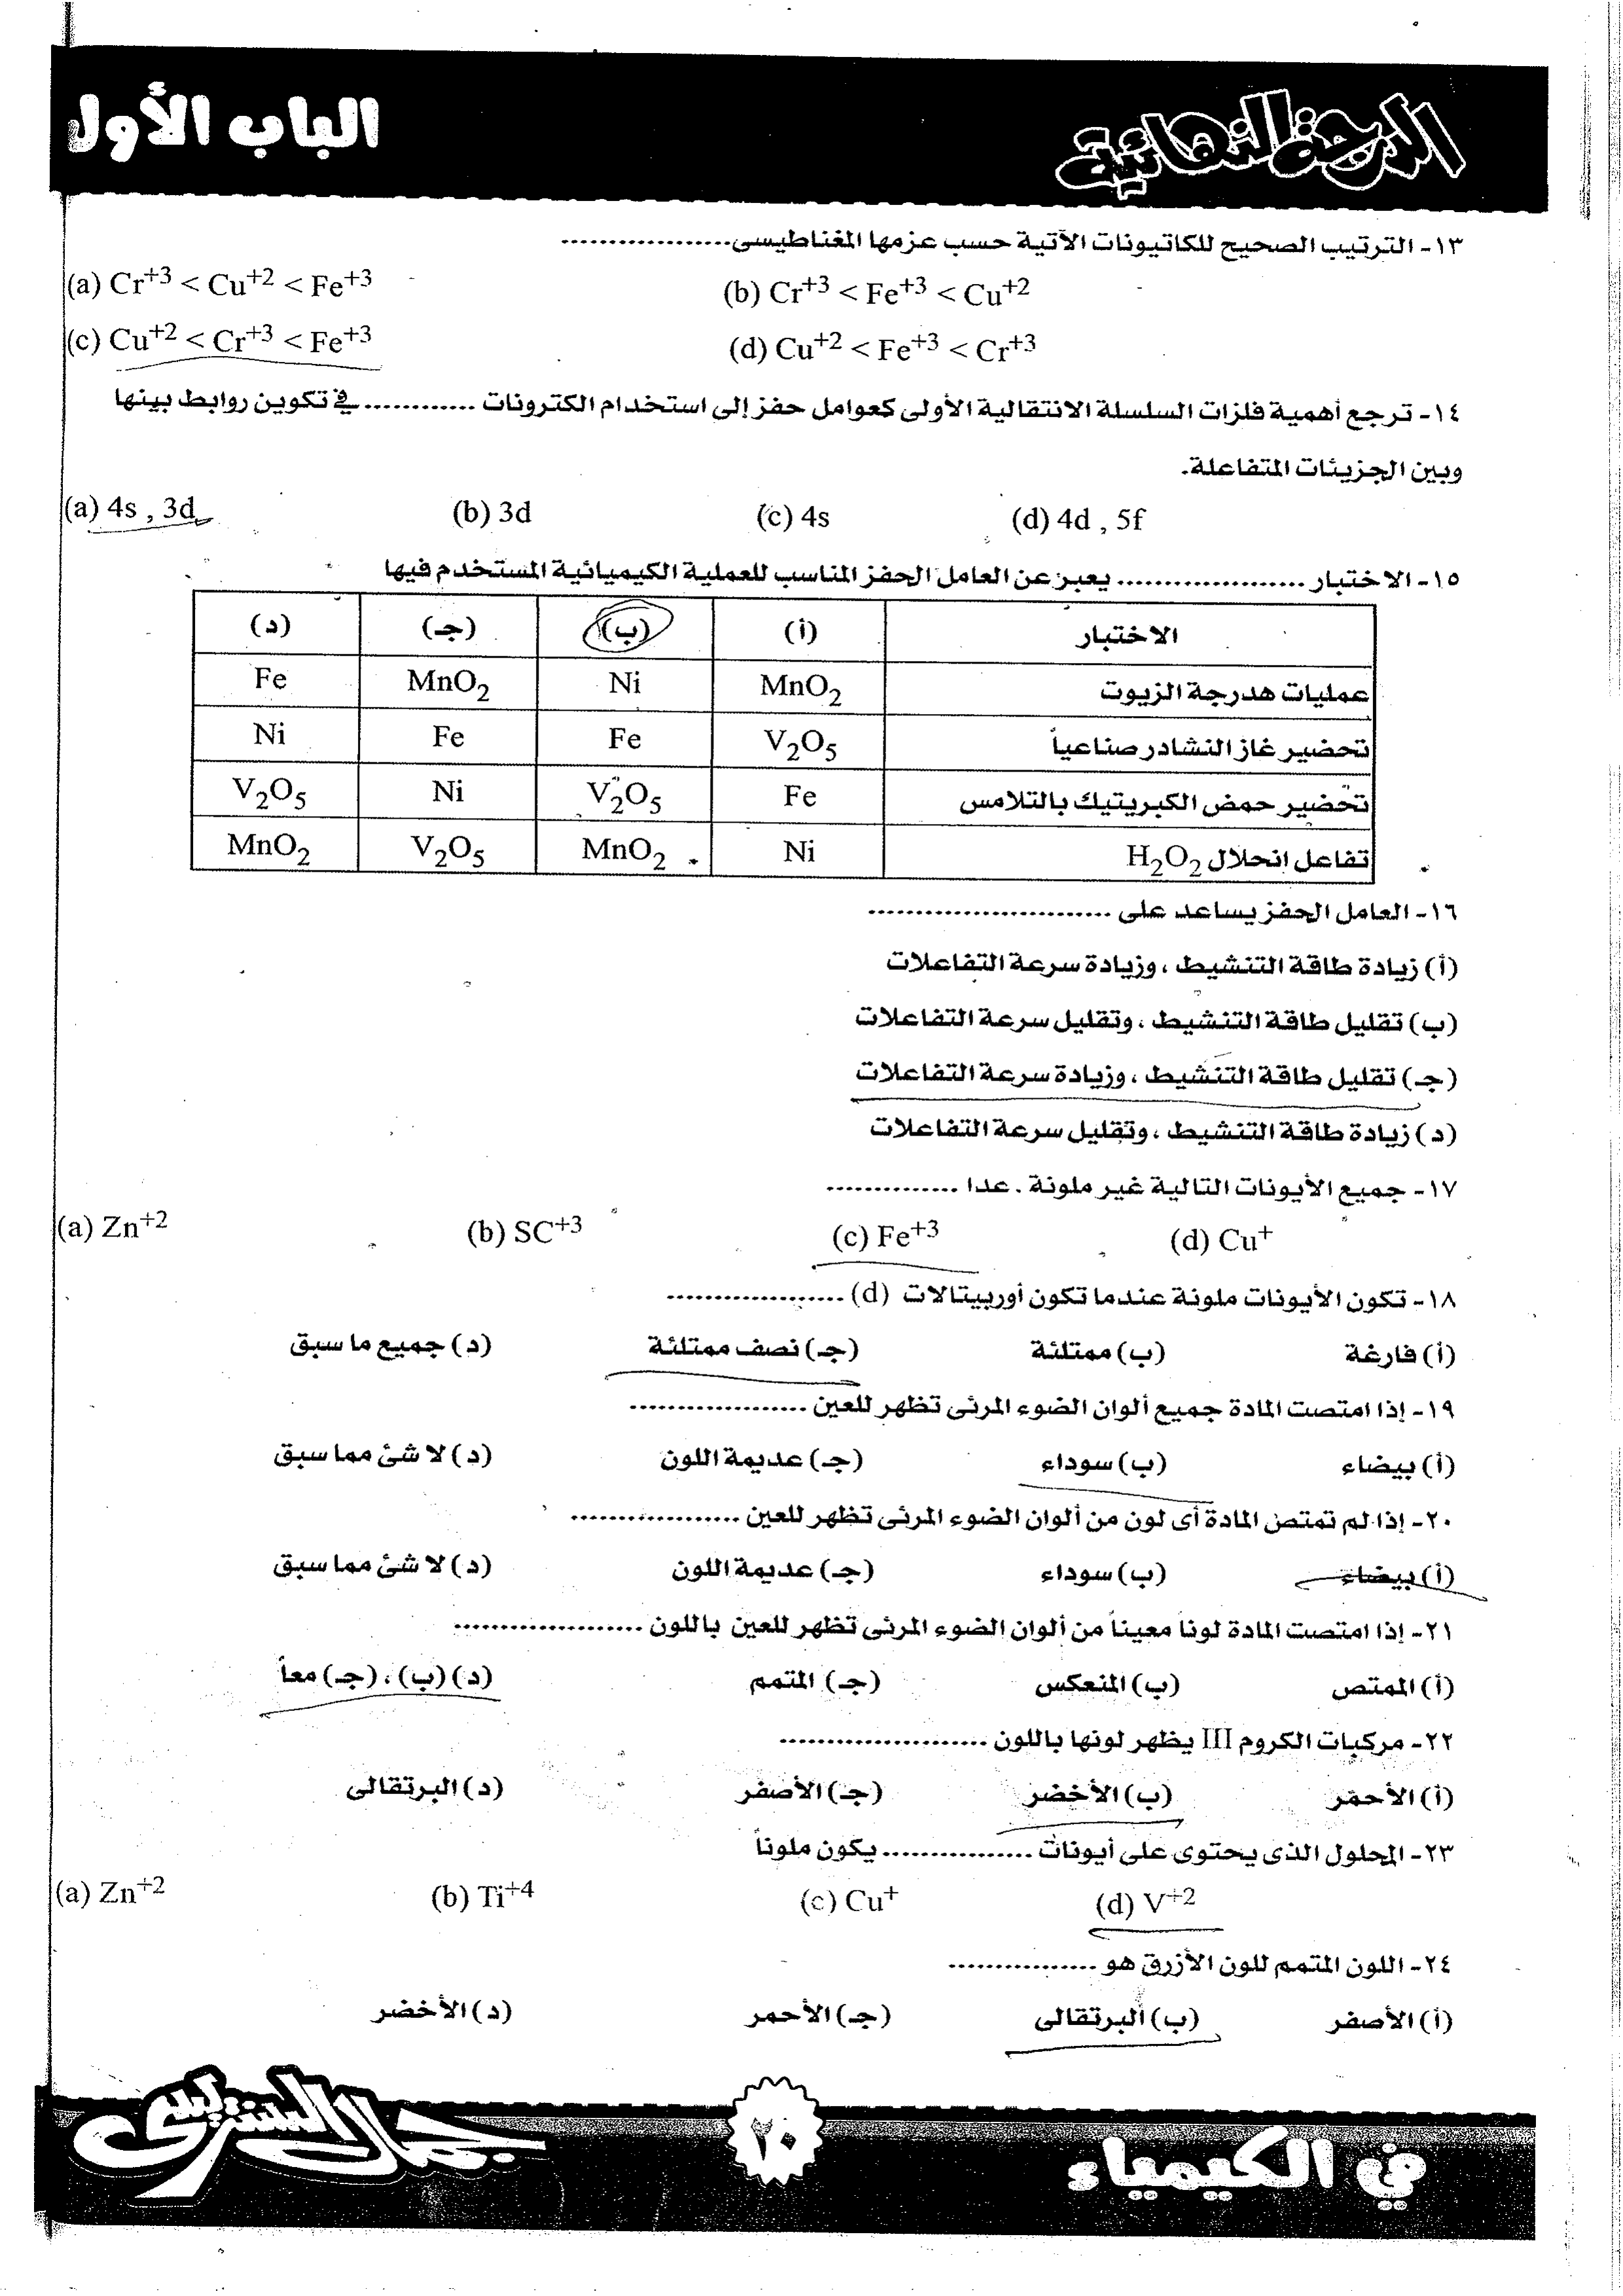 الدرجة النهائية
الباب الأول
١٣- الترتيب الصحيح للكاتيونات الآتية حسب عزمها المغناطيسى..................
(a) Cr+3 < Cu+2 < Fe+3 (b) Cr+3 < Fe+3 < Cu+2
(c) Cu+2 < Cr+3 < Fe+3 (d) Cu+2 < Fe+3 < Cr+3
١٤- ترجع أهمية فلزات السلسلة الانتقالية الأولى كعوامل حفز إلى استخدام الكترونات ............ فى تكوين روابط بينها
وبين الجزيئات المتفاعلة.
(a) 4s , 3d (b) 3d (c) 4s (d) 4d , 5f
١٥- الاختبار .................... يعبر عن العامل الحفز المناسب للعملية الكيميائية المستخدم فيها
الاختبار (أ) (ب) (جـ) (د)
عمليات هدرجة الزيوت MnO2 Ni MnO2 Fe
تحضير غاز النشادر صناعياً V2O5 Fe Fe Ni
تحضير حمض الكبريتيك بالتلامس Fe V2O5 Ni V2O5
تفاعل انحلال H2O2 Ni MnO2 V2O5 MnO2
١٦- العامل الحفز يساعد على ..........................
(أ) زيادة طاقة التنشيط ، وزيادة سرعة التفاعلات
(ب) تقليل طاقة التنشيط ، وتقليل سرعة التفاعلات
(جـ) تقليل طاقة التنشيط ، وزيادة سرعة التفاعلات
(د) زيادة طاقة التنشيط ، وتقليل سرعة التفاعلات
١٧- جميع الأيونات التالية غير ملونة . عدا ..............
(a) Zn+2 (b) SC+3 (c) Fe+3 (d) Cu+
١٨- تكون الأيونات ملونة عندما تكون أوربيتالات (d) ...................
(أ) فارغة (ب) ممتلئة (جـ) نصف ممتلئة (د) جميع ما سبق
١٩- إذا امتصت المادة جميع ألوان الضوء المرئى تظهر للعين ...................
(أ) بيضاء (ب) سوداء (جـ) عديمة اللون (د) لا شئ مما سبق
٢٠- إذا لم تمتص المادة أى لون من ألوان الضوء المرئى تظهر للعين ..................
(أ) بيضاء (ب) سوداء (جـ) عديمة اللون (د) لا شئ مما سبق
٢١- إذا امتصت المادة لوناً معيناً من ألوان الضوء المرئى تظهر للعين باللون ....................
(أ) الممتص (ب) المنعكس (جـ) المتمم (د) (ب) ، (جـ) معاً
٢٢- مركبات الكروم III يظهر لونها باللون ......................
(أ) الأحمر (ب) الأخضر (جـ) الأصفر (د) البرتقالى
٢٣- المحلول الذى يحتوى على أيونات ................ يكون ملوناً
(a) Zn+2 (b) Ti+4 (c) Cu+ (d) V+2
٢٤- اللون المتمم للون الأزرق هو ................
(أ) الأصفر (ب) البرتقالى (جـ) الأحمر (د) الأخضر
في الكيمياء
٢٠